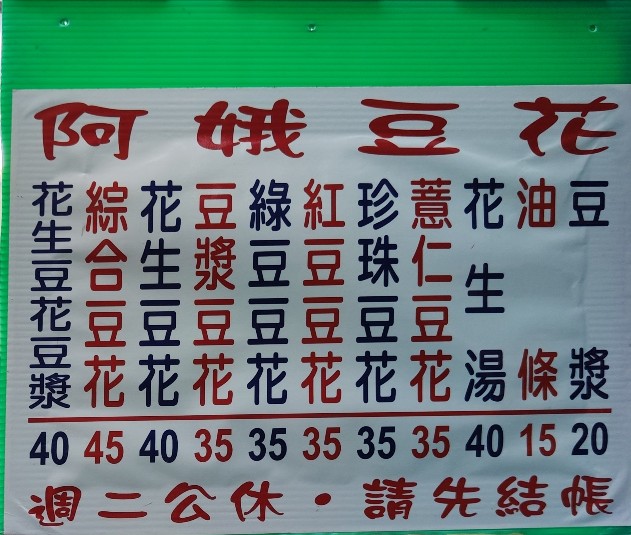 阿娥豆花
豆漿 20
油條 15
花生湯 40
薏仁豆花 35
珍珠豆花 35
紅豆豆花 35
綠豆豆花 35
豆漿豆花 35
花生豆花 40
綜合豆花 45
花生豆花豆漿 40
週二公休·請先結帳